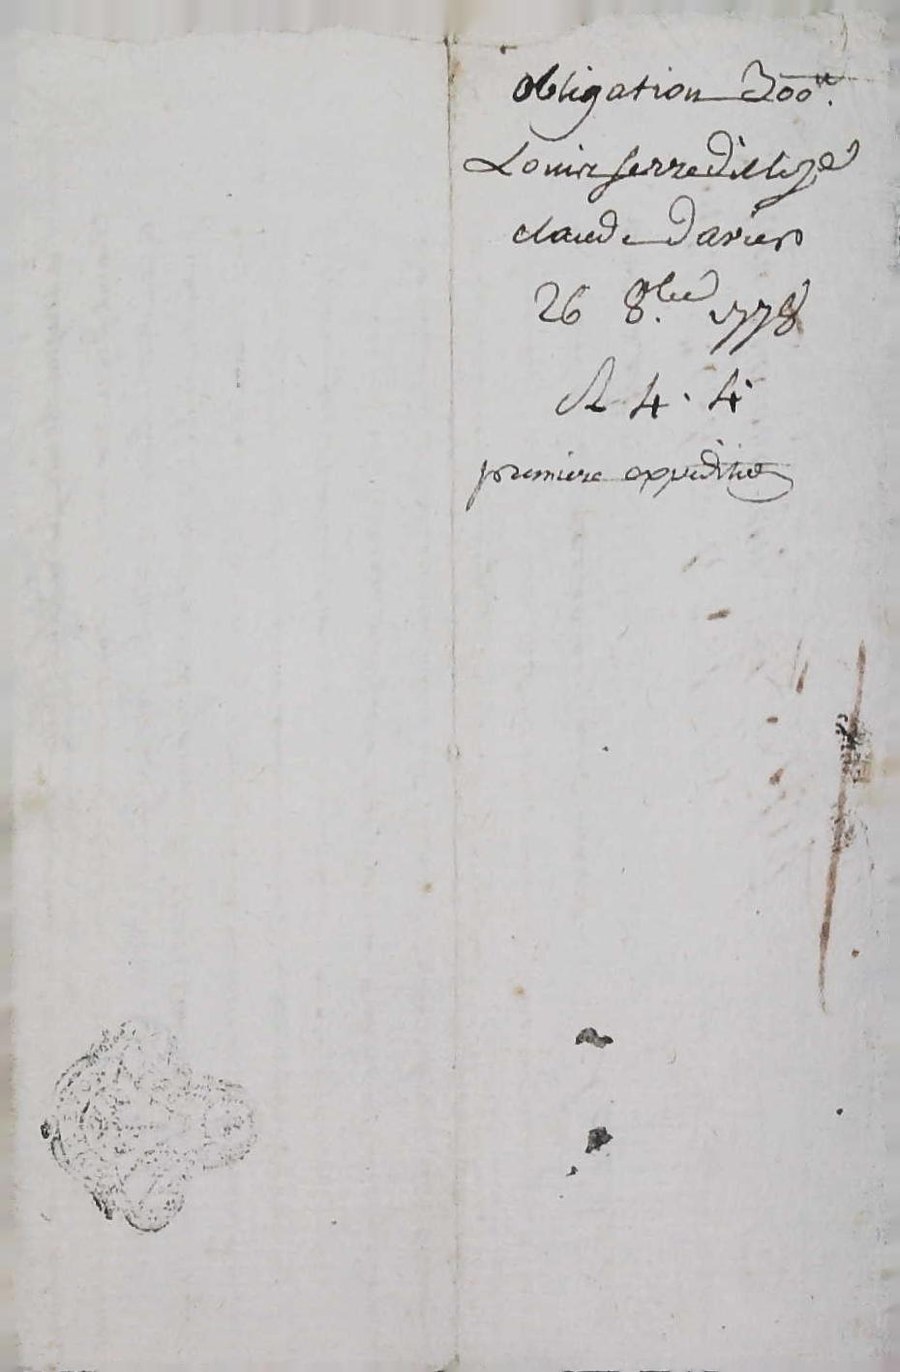 obligation 300tt.
Louis serre
claude davier
26 8.bre 1778
R 4. 4
premiere expedition